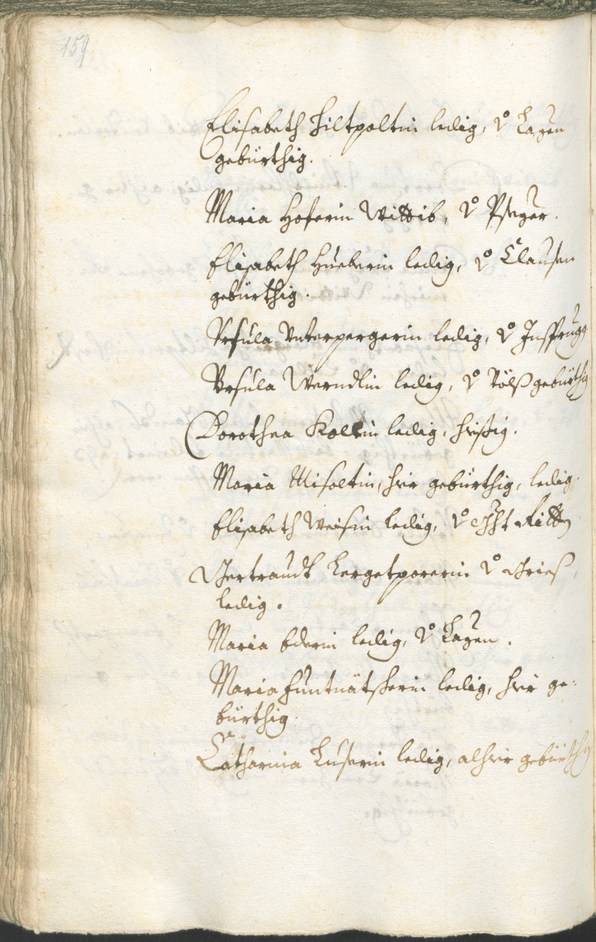 159
Elisabeth Hiltpoltin ledig, v. Lagen
gebürthig.
Maria Hoferin Wittib, v. Pfeger.
Elisabeth Hueberin ledig, v. Clausen
gebürthig.
Vrsula Unterpergerin ledig, v. Insprugg
Vrsula Werndlin ledig, v. Tölß gebürthig
Dorothea Kollin ledig, hießig.
Maria hier gebürthig, ledig.
Elisabeth Weisin ledig, v. Ritten
Gertraudt Kergetporerin v. Gries,
ledig.
Maria Ederin ledig, v. Lagen.
Maria Huntnätscherin ledig, hier ge-
bürthig.
Catharina Luserin ledig, alhier gebürthig